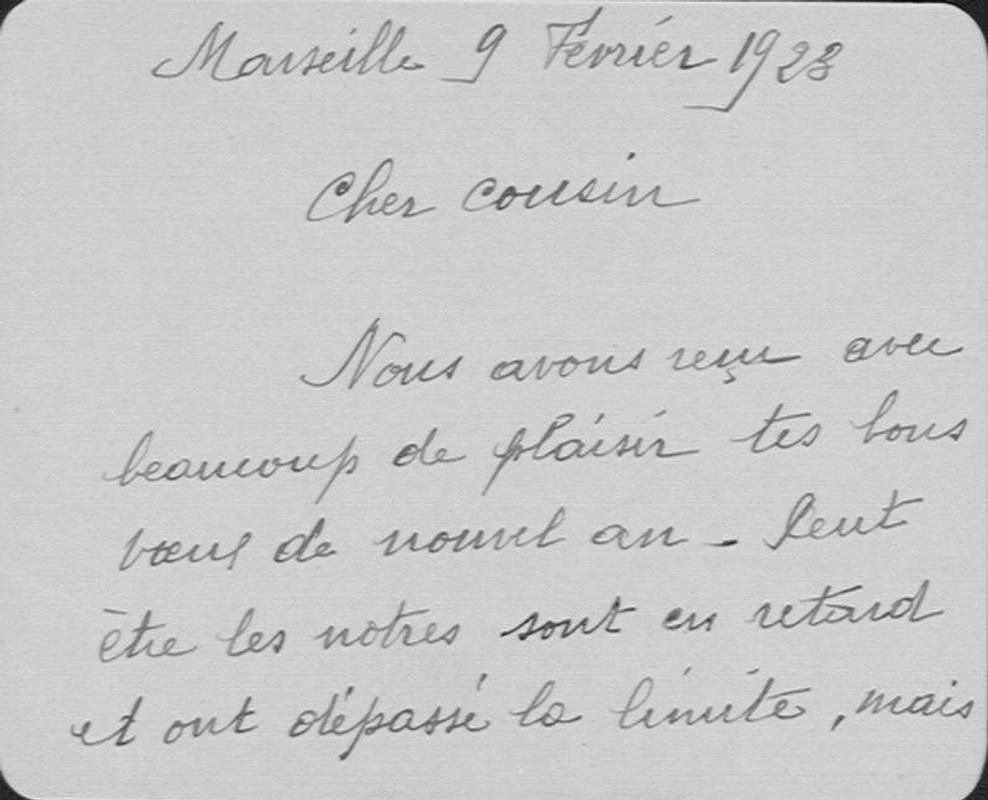 Marseille 9 Février 1928
Cher cousin
Nous avons reçu avec
beaucoup de plaisir tes bons
vœux de nouvel an - Peut
être les notres sont en retard
et ont dépassé la limite, mais